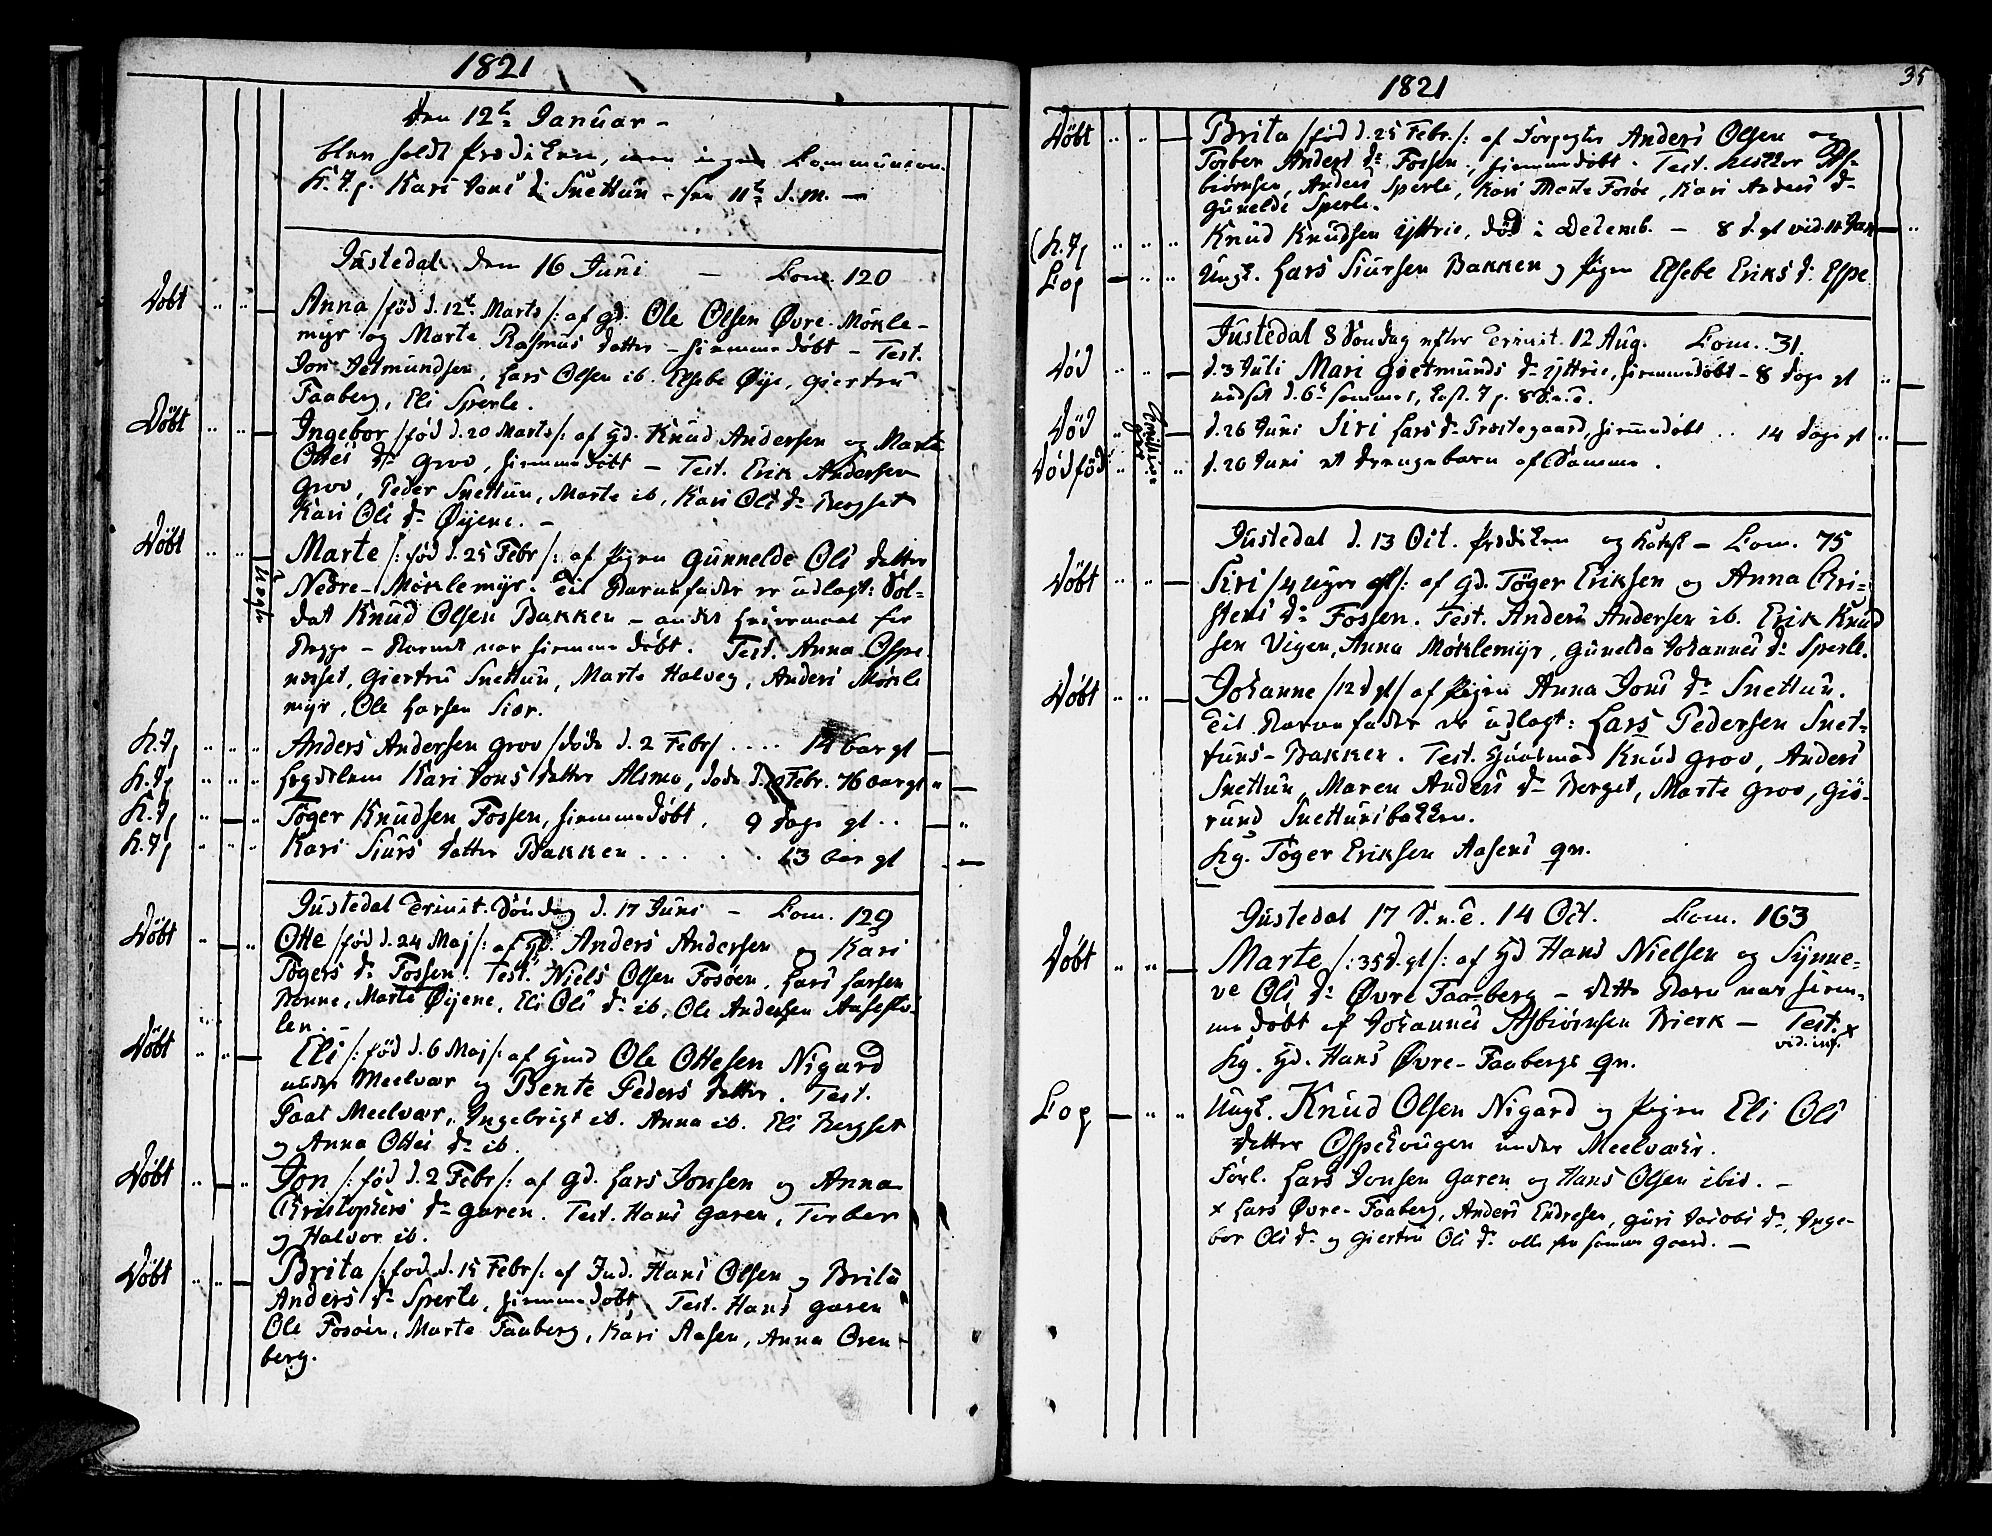 1821
Den 12te Januar -
blev holdt Prædiken, men ingen Communion.
K. J. p. Kari Jons d. Snettun - fra 11te d. M. -
Justedal den 16 Juni - Com. 120
Døbt Anna /: fød d. 12te Marts :/ af gd. Ole Olsen Øvre-Mökle-
myr og Marte Rasmus datter - hiemmedøbt - Test.
Jon Jetmundsen, Lars Olsen ib. Elsebe Øye, Giertru
Faaberg, Eli Sperle.
Døbt Ingebor /: fød d. 20 Marts :/ af Gd. Knud Andersen og Marte
Ottes dr. Grov, hiemmedøbt - Test. Erik Andersen
Grov, Peder Snettun, Marte ib. Kari Ols dr. Bergset
Kari Ols dr. Øyene. -
Døbt Marte /: fød d. 25 Febr :/ af Pigen Gunnelde Ols datter
Uegte
Nedre-Möklemyr. Til Barnefader er udlagt: Sol-
dat Knud Olsen Bakken - andet Leiermaal for
Begge - Barnet var hiemmedøbt. Test. Anna Espe
næset, Giertru Snettun, Marte Halveg, Anders Mökle
myr, Ole Larsen Sior.
K. J. p Anders Andersen Grov /døde d. 2 Febr/ .... 14 Aar gl
K. J. p Lægdslem Kari Jons datter Alsmo, døde d. Febr. 76 Aar gl
K. J. p Töger Knudsen Fossen, hiemmedøbt, 9 dage gl ..
K. J. p Kari Siurs datter Bakken ...... 63 Aar gl
Justedal Trinit. Söndag d. 17 Juni - Com. 129
Døbt Otte /: fød d. 24 Maj :/ af Gd. Anders Andersen og Kari
Tögers dr. Fossen. Test. Niels Olsen Fosöen, Lars Larsen
Rönne, Marte Øyene, Eli Ols dr. ib, Ole Andersen Aasestö-
len. -
Døbt Eli /: fød d. 6 Maj :/ af Hmd Ole Ottesen Nigard
under Meelvær og Bente Peders datter. Test.
Paal Meelvær, Ingebrigt ib. Anna ib. Eli Bergset
og Anna Ottes dr. ib.
Døbt Jon /: fød d. 2 Febr :/ af Gd. Lars Jonsen og Anna
Christophers dr. Garen. Test. Hans Garen, Torber
og Halvor ib.
Døbt Brita /: fød d. 15 Febr :/ af Ind. Hans Olsen og Brita
Anders dr. Sperle, hiemmedøbt. Test. Hans Garen
Ole Fosöen, Marte Faaberg, Kari Aasen, Anna Oren-
berg.
1821
35
Døbt Brita /: fød d. 25 Febr. :/ af Forpagter Anders Olsen og
Torber Anders dr. Fossen, hiemmedøbt. Test. Kloker As-
biørnsen, Anders Sperle, Kari Marte Fosöe, Kari Anders dr.
Gunelde Sperle.
(K. J. p Knud Knudsen Yttrie, död i Decemb. - 8 d. gl vid. 11 Jan
Cop Ungk. Lars Siursen Bakken og Pigen Elsebe Eriks dr. Espe
Justedal 8 Söndag efter Trinit. 12 Aug. Com. 31
Död d. 3 Juli Mari Gietmunds dr. Yttrie, hiemmedøbt - 8 dage gl
nedsat d. 6te sammes, Kast. J p. 8 S. e. T.
Tvillinger
Död d. 26 Juni Siri Lars dr. Prestegaard, hiemmedøbt .. 14 dage gl
Dödfød d. 20 Juni et Drengebarn af Samme.
Justedal d. 13 Oct. Prædiken og Katech - Com. 75
Døbt Siri /4 Uger gl :/ af Gd. Töger Eriksen og Anna Chri-
stens dr. Fossen. Test. Anders Andersen ib. Erik Knud
sen Vigen, Anna Möklemyr, Gunelda Johannes dr. Sperle.
Døbt Johanne /12 d gl/ af Pigen Anna Jons dr. Snettun.
Til Barnefader er udlagt: Lars Pedersen Snet-
tuns-Bakken. Test. Huusmad Knud Grov, Anders
Snettun, Maren Anders dr. Berget, Marte Grov, Giö-
rund Snettunsbakken.
Hg. Töger Eriksen Aasens qv.
Justedal 17 S. e. T. 14 Oct. Com. 163
Døbt Marte /: 35 d. gl :/ af Gd Hans Nielsen og Synne-
ve Ols dr. Øvre Faaberg - dette Barn var hiem-
me døbt af Johannes Asbiørnsen Bierk - Test. x
vid. inf.
Hg. Gd. Hans Øvre-Faabergs qv.
Cop Ungk. Knud Olsen Nigard og Pigen Eli Ols
datter Espehougen under Meelvær.
Forl. Lars Jonsen Garen og Hans Olsen ibid. -
x Lars Øvre-Faaberg, Anders Endresen, Guri Jacobs dr., Inge-
bor Ols dr. og Giertru Ols dr. alle fra samme Gaard. -